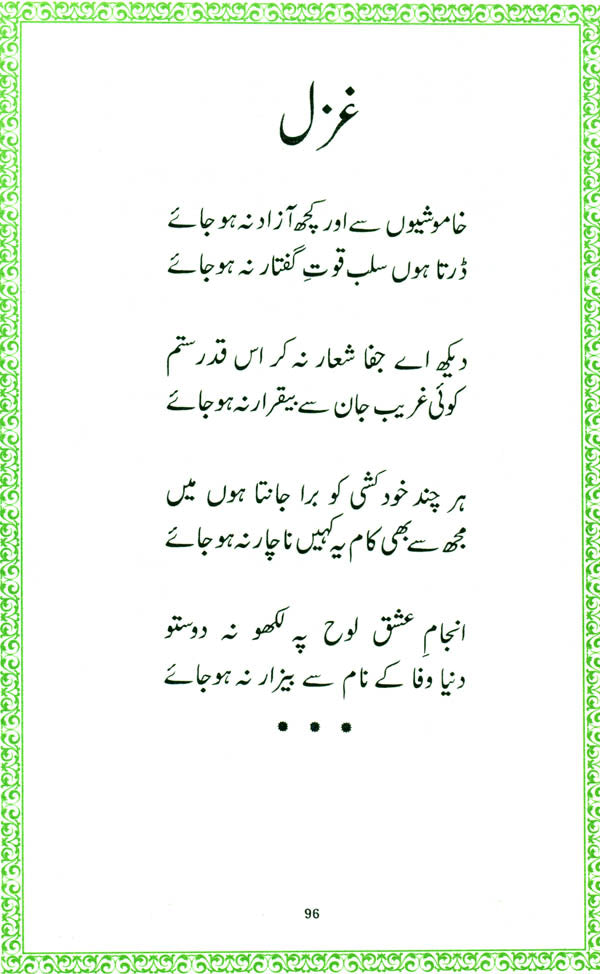 غزل
خاموشیوں سے اور کچھ آزاد نہ ہو جائے
ڈرتا ہوں سلب قوتِ گفتار نہ ہو جائے
دیکھ اے جفا شعار نہ کر اس قدر ستم
کوئی غریب جان سے بیقرار نہ ہو جائے
ہر چند خودکشی کو برا جانتا ہوں میں
مجھ سے بھی کام یہ کہیں ناچار نہ ہو جائے
انجامِ عشق لوح پہ لکھو نہ دوستو
دنیا وفا کے نام سے بیزار نہ ہو جائے
96